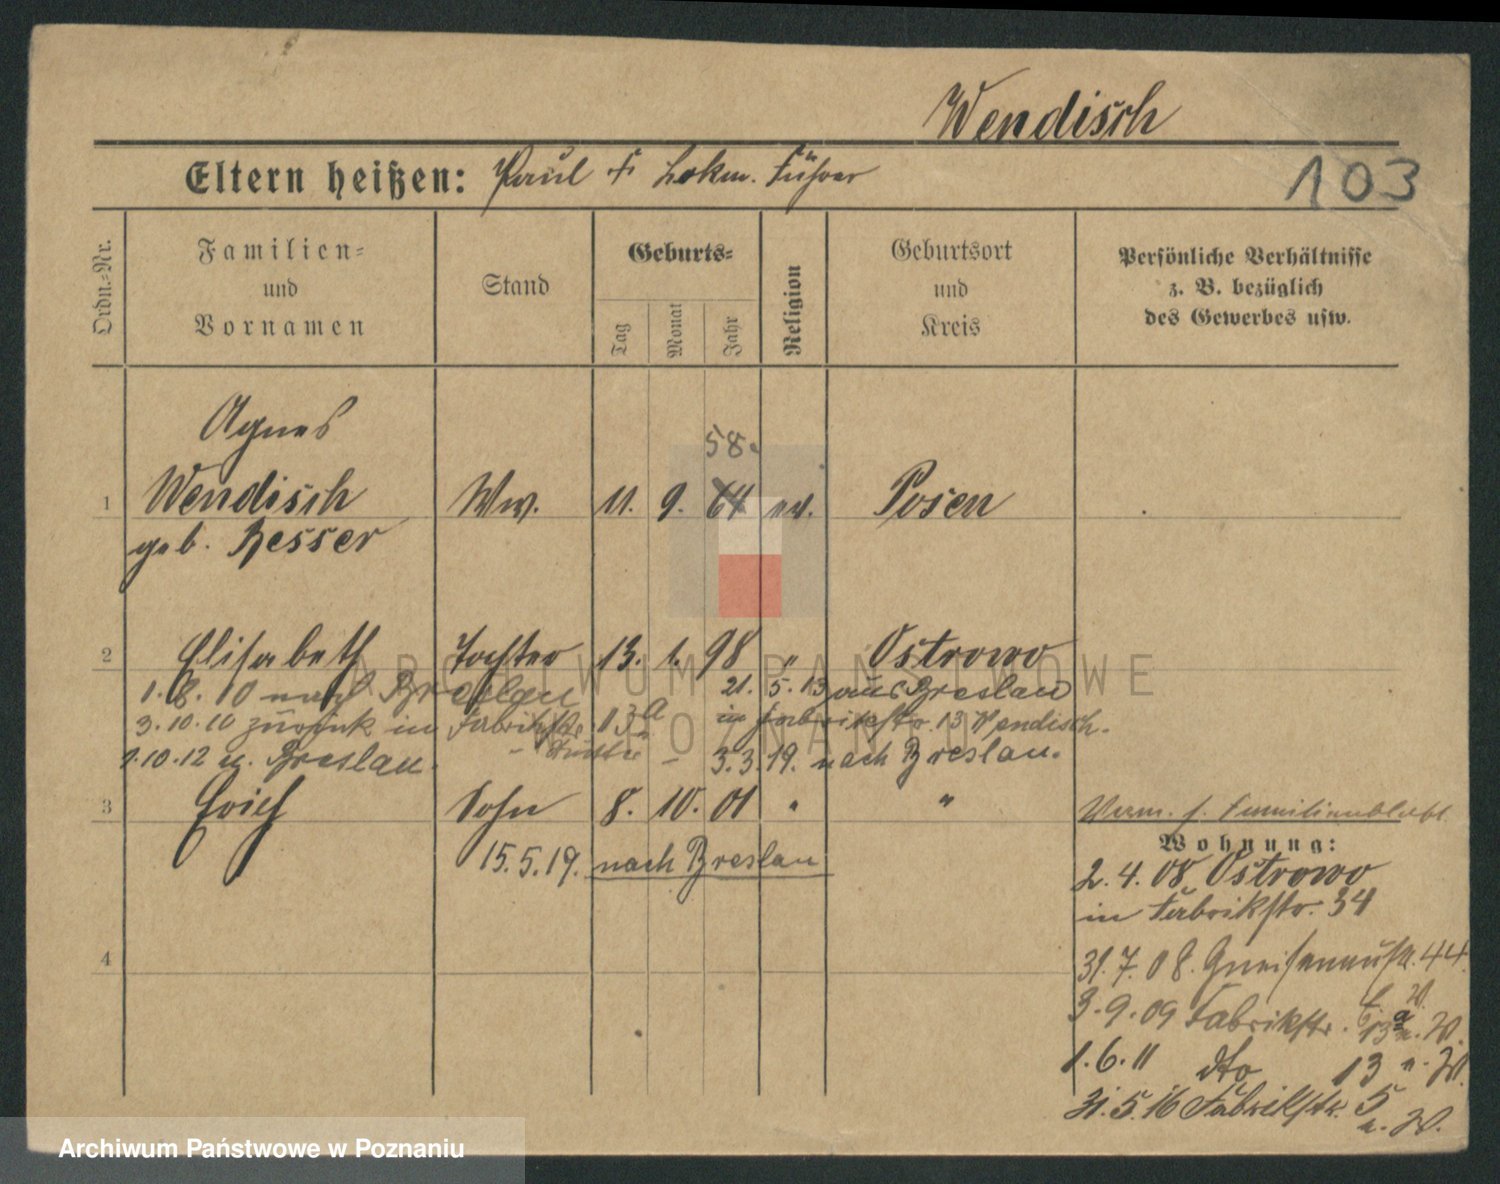 Wendisch
Eltern heißen: Paul † Lokm. Führer
103
Ordn.-Nr.
Familien- und Vornamen
Stand
Geburts-
Tag
Monat
Jahr
Religion
Geburtsort und Kreis
Persönliche Verhältnisse
z. B. bezüglich
des Gewerbes usw.
Agnes
58.
1 Wendisch Ww. 11. 9. 64 ev. Posen
geb. Besser
2 Elisabeth Tochter 13. 1. 98 " Ostrowo
1.8.10 nach Breslau 21.5.13 aus Breslau
3.10.10 zurück in Fabrikstr. 13a in Fabrikstr. 13 Wendisch.
1.10.12 n. Breslau. 3.3.19. nach Breslau.
3 Erich Sohn 8. 10. 01 " "
15.5.19. nach Breslau
4
Verm. s. Familienblatt
Wohnung:
2.4.08 Ostrowo
in Fabrikstr. 34
31.7.08. Gneisenaustr. 44.
3.9.09 Fabrikstr. 13a
1.6.11 dto 13
31.5.16 Fabrikstr. 5
ARCHIWUM PAŃSTWOWE
W POZNANIU
Archiwum Państwowe w Poznaniu